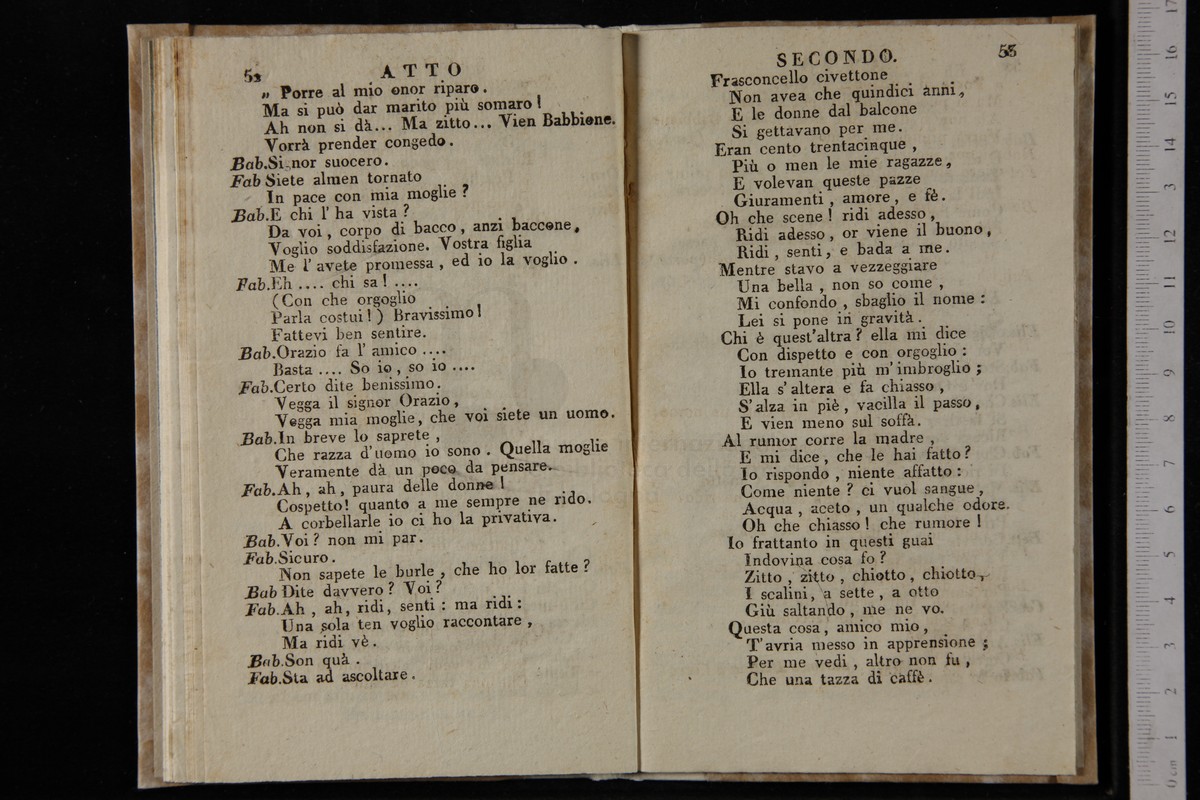 52
ATTO
„ Porre al mio onor riparo.
Ma si può dar marito più somaro!
Ah non si dà... Ma zitto... Vien Babbione.
Vorrà prender congedo.
Bab.Signor suocero.
Fab Siete almen tornato
In pace con mia moglie?
Bab.E chi l'ha vista?
Da voi, corpo di bacco, anzi baccone,
Voglio soddisfazione. Vostra figlia
Me l'avete promessa, ed io la voglio.
Fab.Eh .... chi sa! ....
(Con che orgoglio
Parla costui!) Bravissimo!
Fattevi ben sentire.
Bab.Orazio fa l'amico ....
Basta .... So io, so io ....
Fab.Certo dite benissimo.
Vegga il signor Orazio,
Vegga mia moglie, che voi siete un uomo.
Bab.In breve lo saprete,
Che razza d'uomo io sono. Quella moglie
Veramente dà un poco da pensare.
Fab.Ah, ah, paura delle donne!
Cospetto! quanto a me sempre ne rido.
A corbellarle io ci ho la privativa.
Bab.Voi? non mi par.
Fab.Sicuro.
Non sapete le burle, che ho lor fatte?
Bab Dite davvero? Voi?
Fab.Ah, ah, ridi, senti: ma ridi:
Una sola ten voglio raccontare,
Ma ridi vè.
Bab.Son quà.
Fab.Sta ad ascoltare.
SECONDO.
53
Frasconcello civettone
Non avea che quindici anni,
E le donne dal balcone
Si gettavano per me.
Eran cento trentacinque,
Più o men le mie ragazze,
E volevan queste pazze
Giuramenti, amore, e fè.
Oh che scene! ridi adesso,
Ridi adesso, or viene il buono,
Ridi, senti, e bada a me.
Mentre stavo a vezzeggiare
Una bella, non so come,
Mi confondo, sbaglio il nome:
Lei si pone in gravità.
Chi è quest'altra? ella mi dice
Con dispetto e con orgoglio:
Io tremante più m'imbroglio;
Ella s'altera e fa chiasso,
S'alza in piè, vacilla il passo,
E vien meno sul soffà.
Al rumor corre la madre,
E mi dice, che le hai fatto?
Io rispondo, niente affatto:
Come niente? ci vuol sangue,
Acqua, aceto, un qualche odore.
Oh che chiasso! che rumore!
Io frattanto in questi guai
Indovina cosa fo?
Zitto, zitto, chiotto, chiotto,
I scalini, a sette, a otto
Giù saltando, me ne vo.
Questa cosa, amico mio,
T'avria messo in apprensione;
Per me vedi, altro non fu,
Che una tazza di caffè.
0 cm 1 2 3 4 5 6 7 8 9 10 11 12 13 14 15 16 17